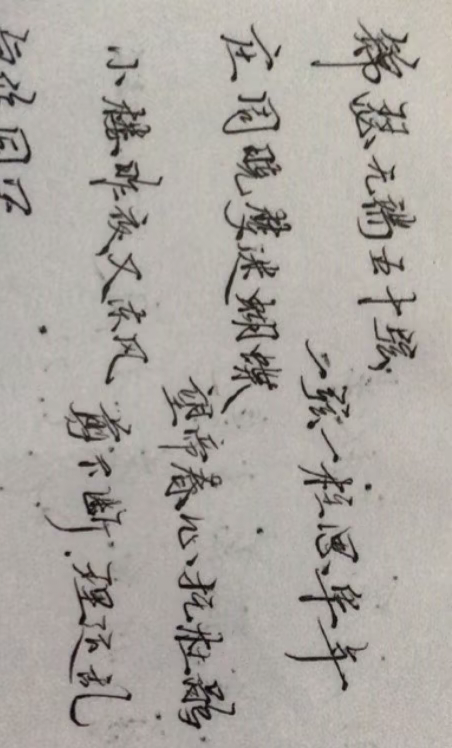 锦瑟无端五十弦
一弦一柱思华年
庄周晓梦迷蝴蝶
望帝春心托杜鹃
小楼昨夜又东风
剪不断理还乱